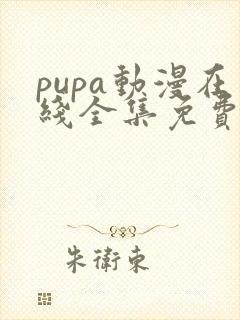 pupa動漫在
綫全集免費
朱衛東